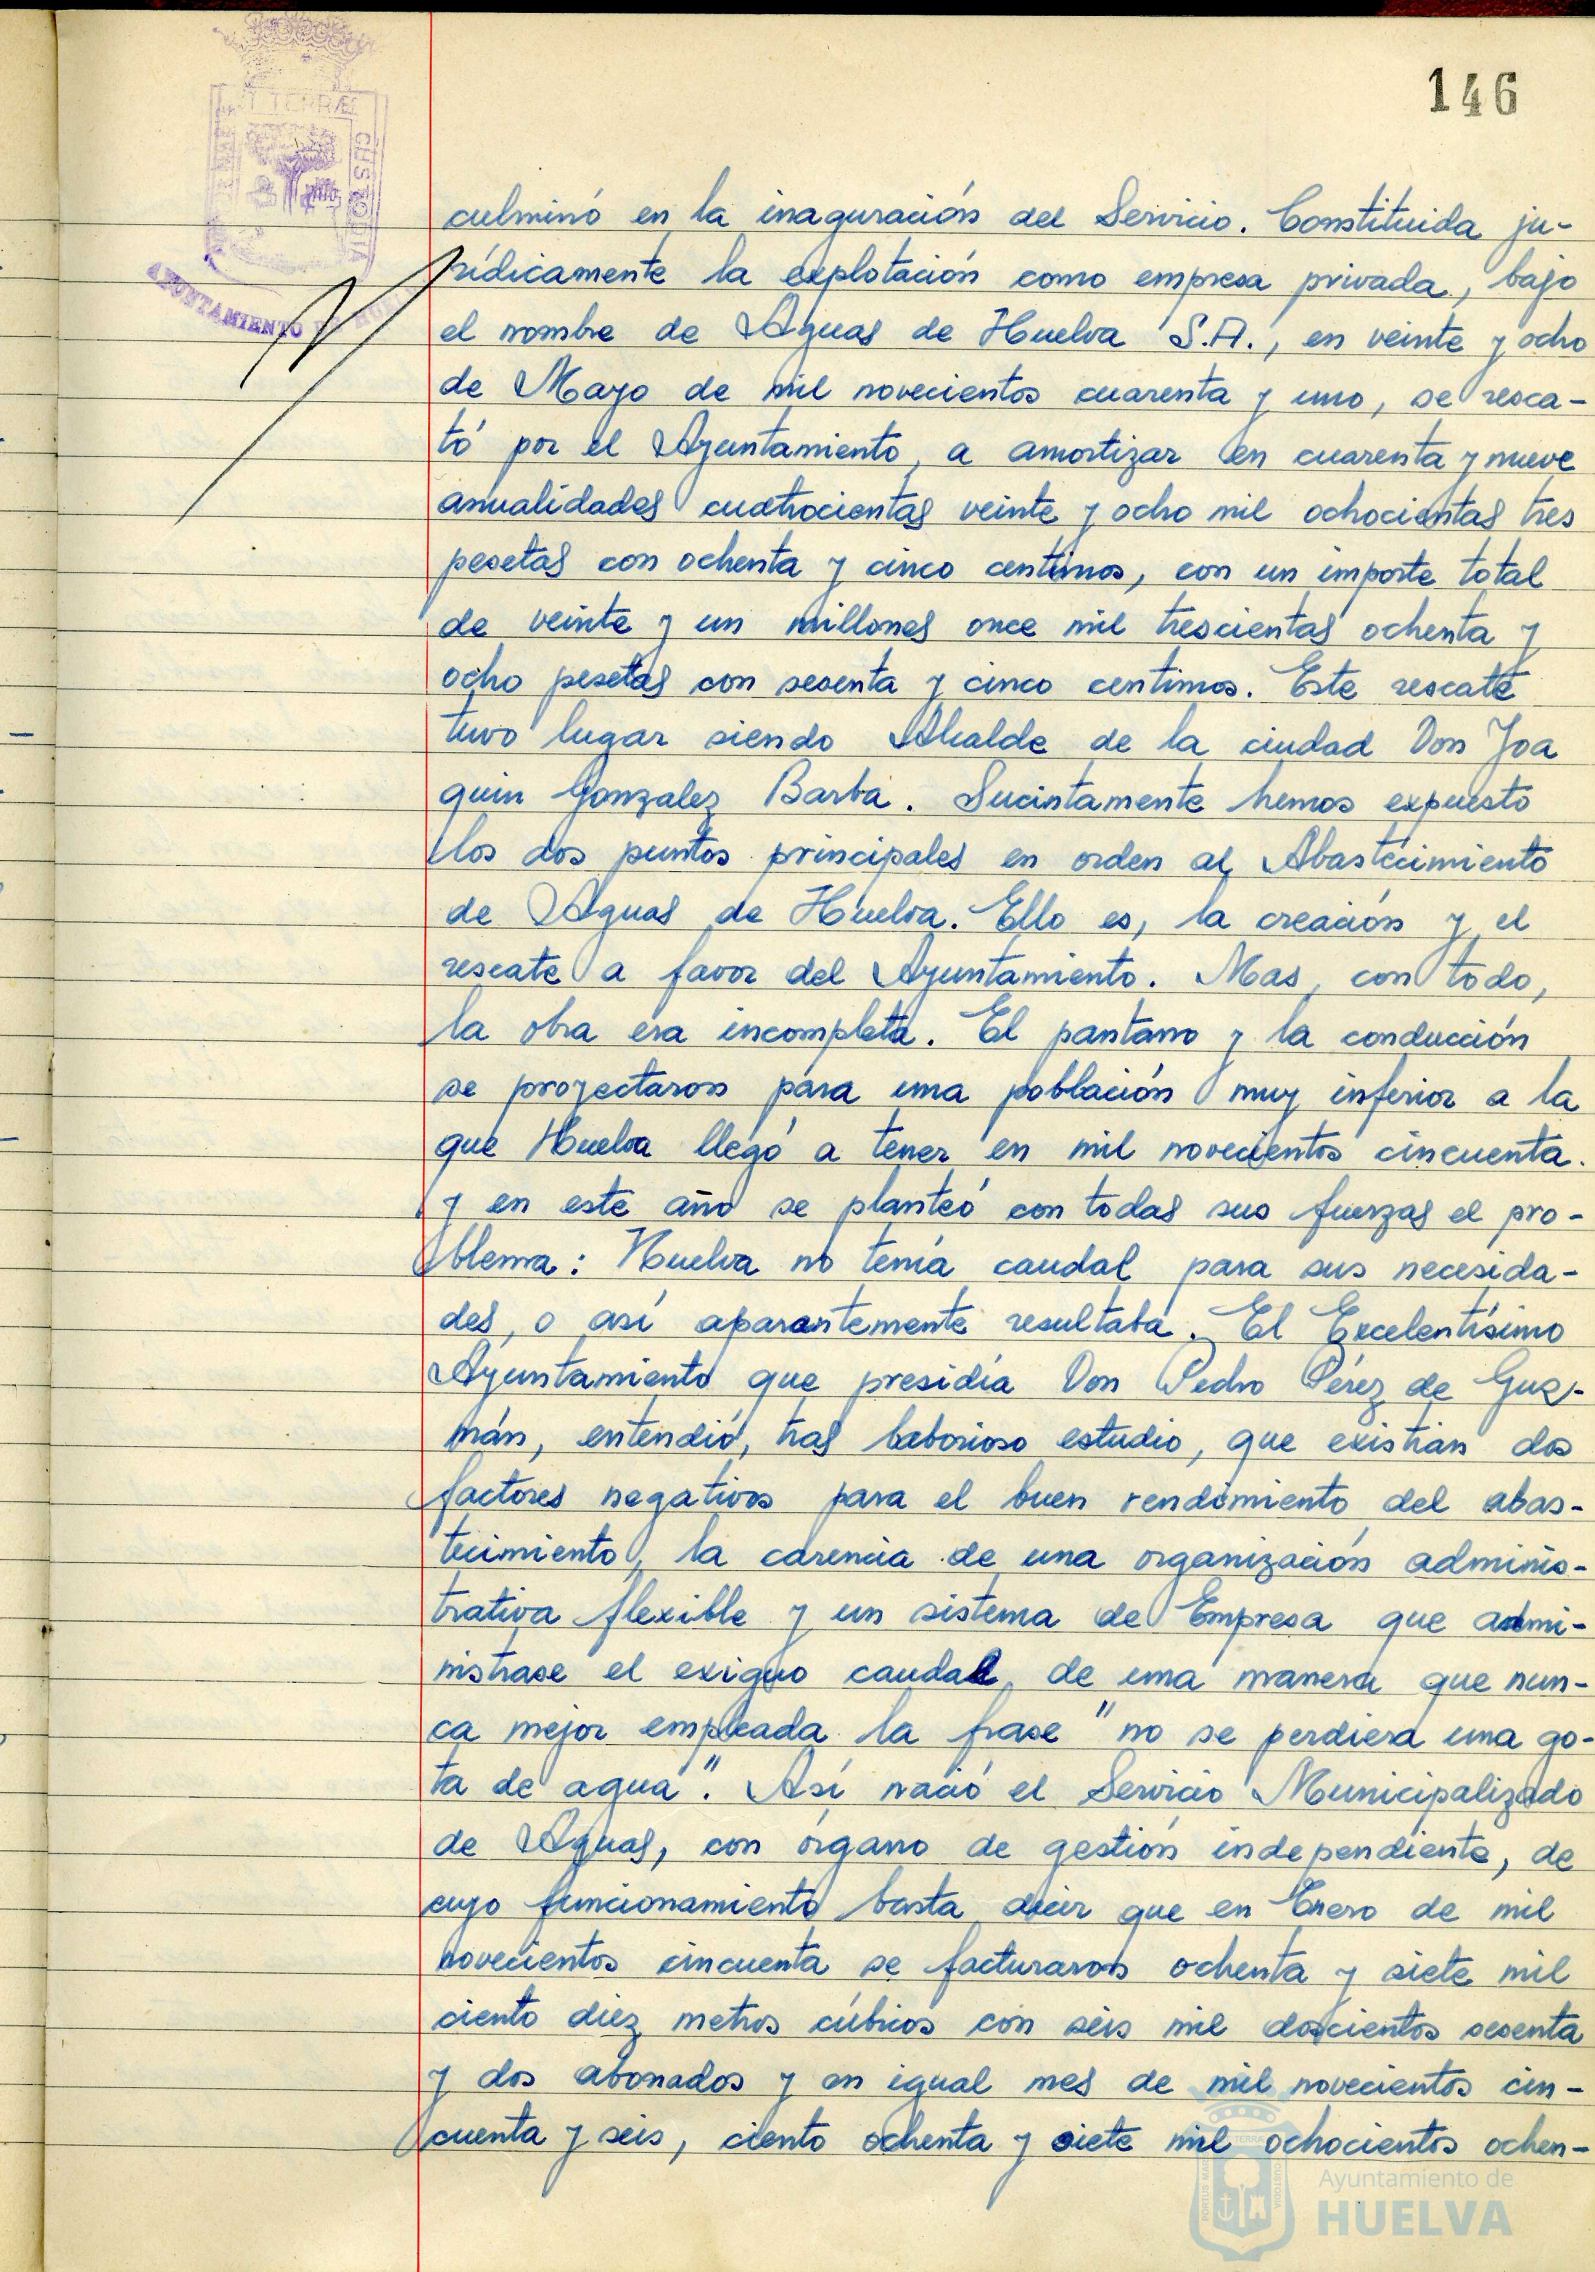 146
T TERRÆ
CUSTODIA
AYUNTAMIENTO DE HUEL
culminó en la inaguración del Servicio. Constituida ju-
rídicamente la explotación como empresa privada, bajo
el nombre de Aguas de Huelva S.A., en veinte y ocho
de Mayo de mil novecientos cuarenta y uno, se resca-
tó por el Ayuntamiento, a amortizar en cuarenta y nueve
anualidades cuatrocientas veinte y ocho mil ochocientas tres
pesetas con ochenta y cinco centimos, con un importe total
de veinte y un millones once mil trescientas ochenta y
ocho pesetas con sesenta y cinco centimos. Este rescate
tuvo lugar siendo Alcalde de la ciudad Don Joa
quin Gonzalez Barba. Sucintamente hemos expuesto
los dos puntos principales en orden al Abastecimiento
de Aguas de Huelva. Ello es, la creación y el
rescate a favor del Ayuntamiento. Mas, con todo,
la obra era incompleta. El pantano y la conducción
se proyectaron para una población muy inferior a la
que Huelva llegó a tener en mil novecientos cincuenta.
y en este año se planteó con todas sus fuerzas el pro-
blema: Huelva no tenía caudal para sus necesida-
des, o así aparantemente resultaba. El Excelentísimo
Ayuntamiento que presidía Don Pedro Pérez de Guz-
mán, entendió, tras laborioso estudio, que existían dos
factores negativos para el buen rendimiento del abas-
tecimiento, la carencia de una organización adminis-
trativa flexible y un sistema de Empresa que admi-
nistrase el exiguo caudal de una manera que nun-
ca mejor empleada la frase "no se perdiera una go-
ta de agua". Así nació el Servicio Municipalizado
de Aguas, con órgano de gestión independiente, de
cuyo funcionamiento basta decir que en Enero de mil
novecientos cincuenta se facturaron ochenta y siete mil
ciento diez metros cúbicos con seis mil doscientos sesenta
y dos abonados y en igual mes de mil novecientos cin-
cuenta y seis, ciento ochenta y siete mil ochocientos ochen-
Ayuntamiento de
HUELVA